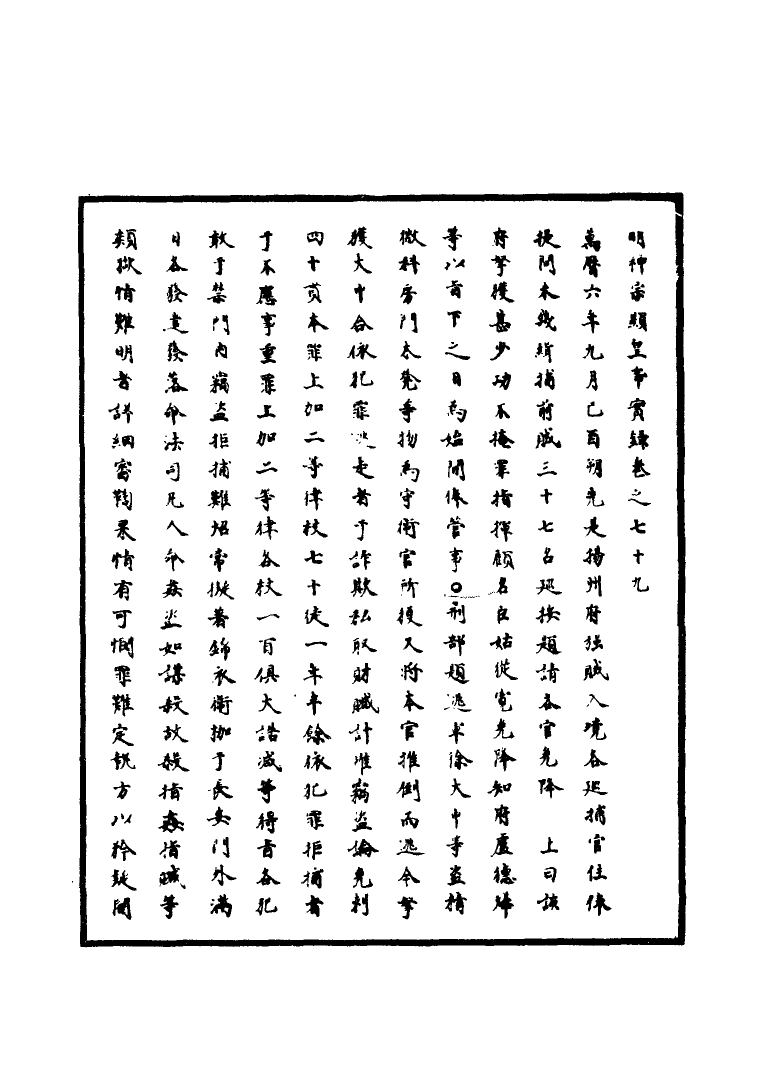 明神宗顯皇帝實錄卷之七十九
萬曆六年九月己酉朔先是揚州府強賊入境各巡捕官住俸
提問未幾緝捕前賊三十七名巡按題請各官免降　上曰該
府拏獲甚少功不掩罪指揮顧名臣姑從寬免降知府盧德燁
等以旨下之日為始開俸管事○刑部題逃軍徐大中等盜情
微科房門未毀爭物為守衛官所獲又將本官推倒而逃今拏
獲大中合依犯罪逃走者于詐欺私取財贓計準竊盜論免刺
四十貫本罪上加二等律杖七十徒一年半餘依犯罪拒捕者
于不應事重罪上加二等律各杖一百俱大誥減等得旨各犯
敢于禁門內竊盜拒捕難照常擬著錦衣衛枷于長安門外滿
日各發遣發落命法司凡人命姦盜如謀殺故殺指姦指贓等
類獄情難明者詳細審鞫果情有可憫罪難定執方以矜疑開